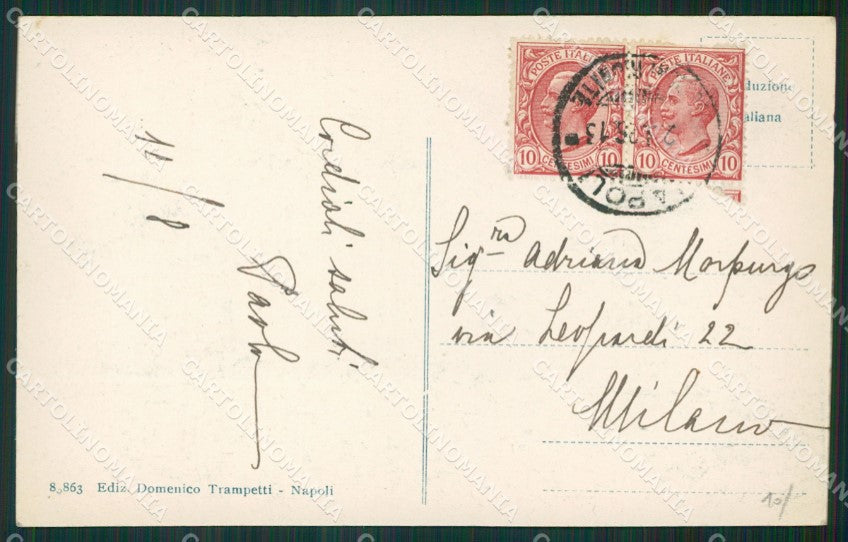 14/8
Cordiali saluti
Paolo
8.863 Ediz. Domenico Trampetti - Napoli
POSTE ITALIANE
10 CENTESIMI 10
POSTE ITALIANE
10 CENTESIMI 10
NAPOLI
duzione
aliana
Sig.ra Adriana Morpurgo
via Leopardi 22
Milano
10/
CARTOLINOMANIA